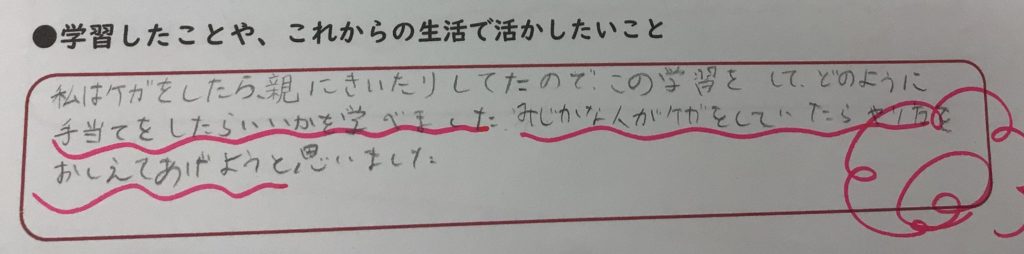 ●学習したことや、これからの生活で活かしたいこと
私はケガをしたら、親にきいたりしてたので、この学習をして、どのように
手当てをしたらいいかを学べました。みじかな人がケガをしていたらやり方を
おしえてあげようと思いました。